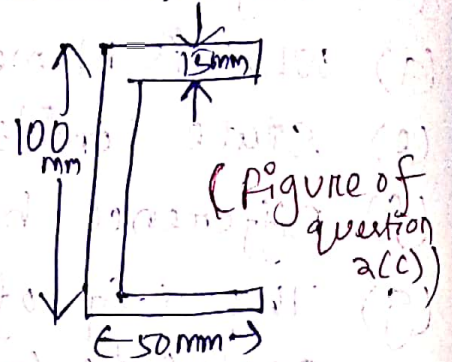 15mm
100
mm
(Figure of
question
2(C))
50mm